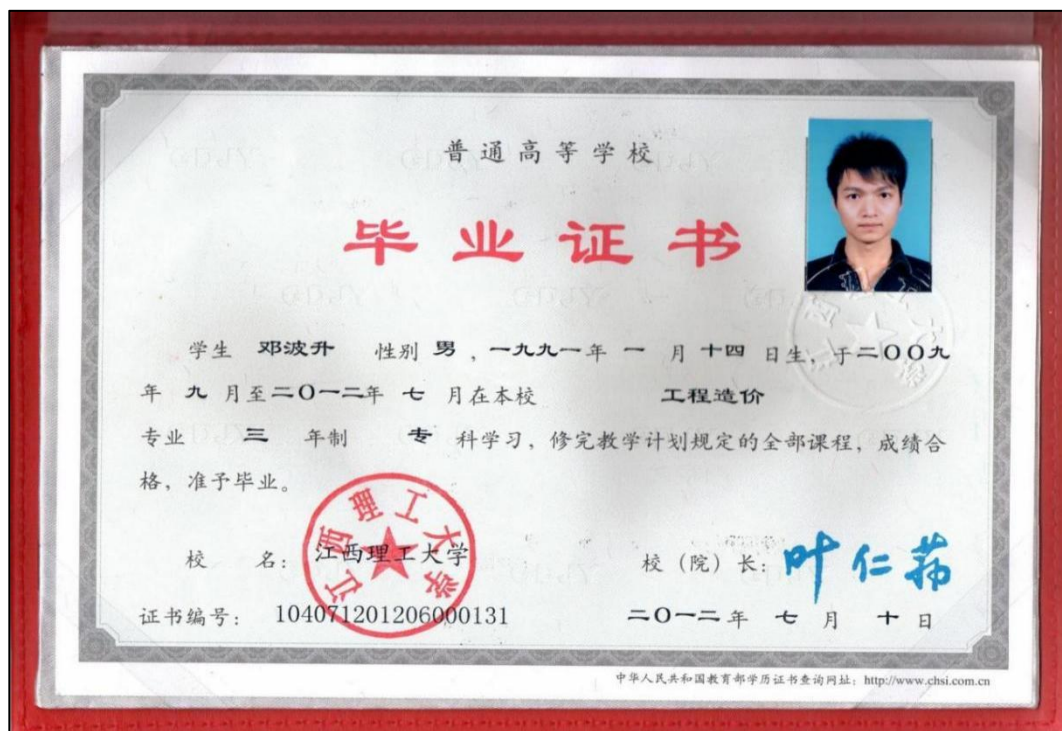 普通高等学校
毕业证书
学生 邓波升 性别 男，一九九一年 一 月 十四 日生，于二〇〇九
年 九 月至二〇一二年 七 月在本校 工程造价
专业 三 年制 专 科学习，修完教学计划规定的全部课程，成绩合
格，准予毕业。
江西理工大学
校 名：江西理工大学
校（院）长：叶仁荪
证书编号：104071201206000131
二〇一二年 七 月 十 日
中华人民共和国教育部学历证书查询网址：http://www.chsi.com.cn